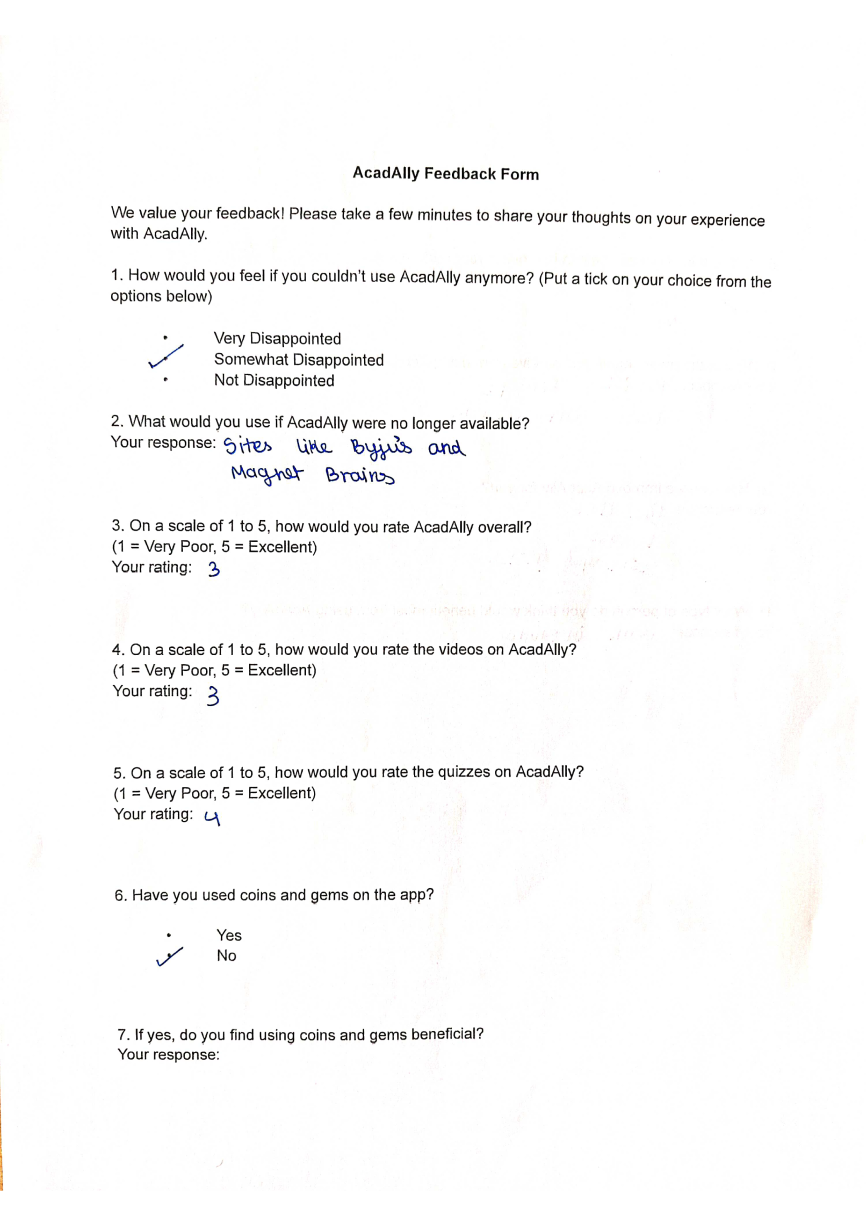 AcadAlly Feedback Form
We value your feedback! Please take a few minutes to share your thoughts on your experience
with AcadAlly.
1. How would you feel if you couldn't use AcadAlly anymore? (Put a tick on your choice from the
options below)
• Very Disappointed
✓ Somewhat Disappointed
• Not Disappointed
2. What would you use if AcadAlly were no longer available?
Your response: Sites like Byju's and
Magnet Brains
3. On a scale of 1 to 5, how would you rate AcadAlly overall?
(1 = Very Poor, 5 = Excellent)
Your rating: 3
4. On a scale of 1 to 5, how would you rate the videos on AcadAlly?
(1 = Very Poor, 5 = Excellent)
Your rating: 3
5. On a scale of 1 to 5, how would you rate the quizzes on AcadAlly?
(1 = Very Poor, 5 = Excellent)
Your rating: 4
6. Have you used coins and gems on the app?
• Yes
✓ No
7. If yes, do you find using coins and gems beneficial?
Your response: